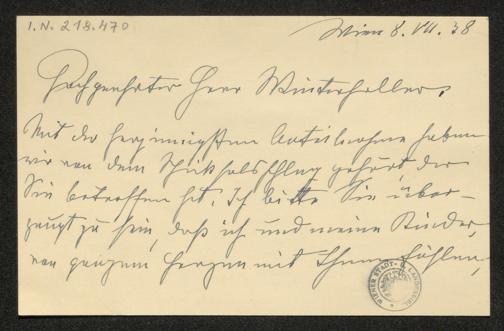 I.N. 218.470
Wien 8. VII. 38
Hochgeehrter Herr Winterhalter,
Mit der herzinnigsten Anteilnahme haben
wir von dem Schicksalsschlag gehört der
Sie betroffen hat. Ich bitte Sie über-
zeugt zu sein, daß ich und meine Kinder,
von ganzem Herzen mit Ihnen fühlen,
WIENER STADT- U. LANDESBIBL.